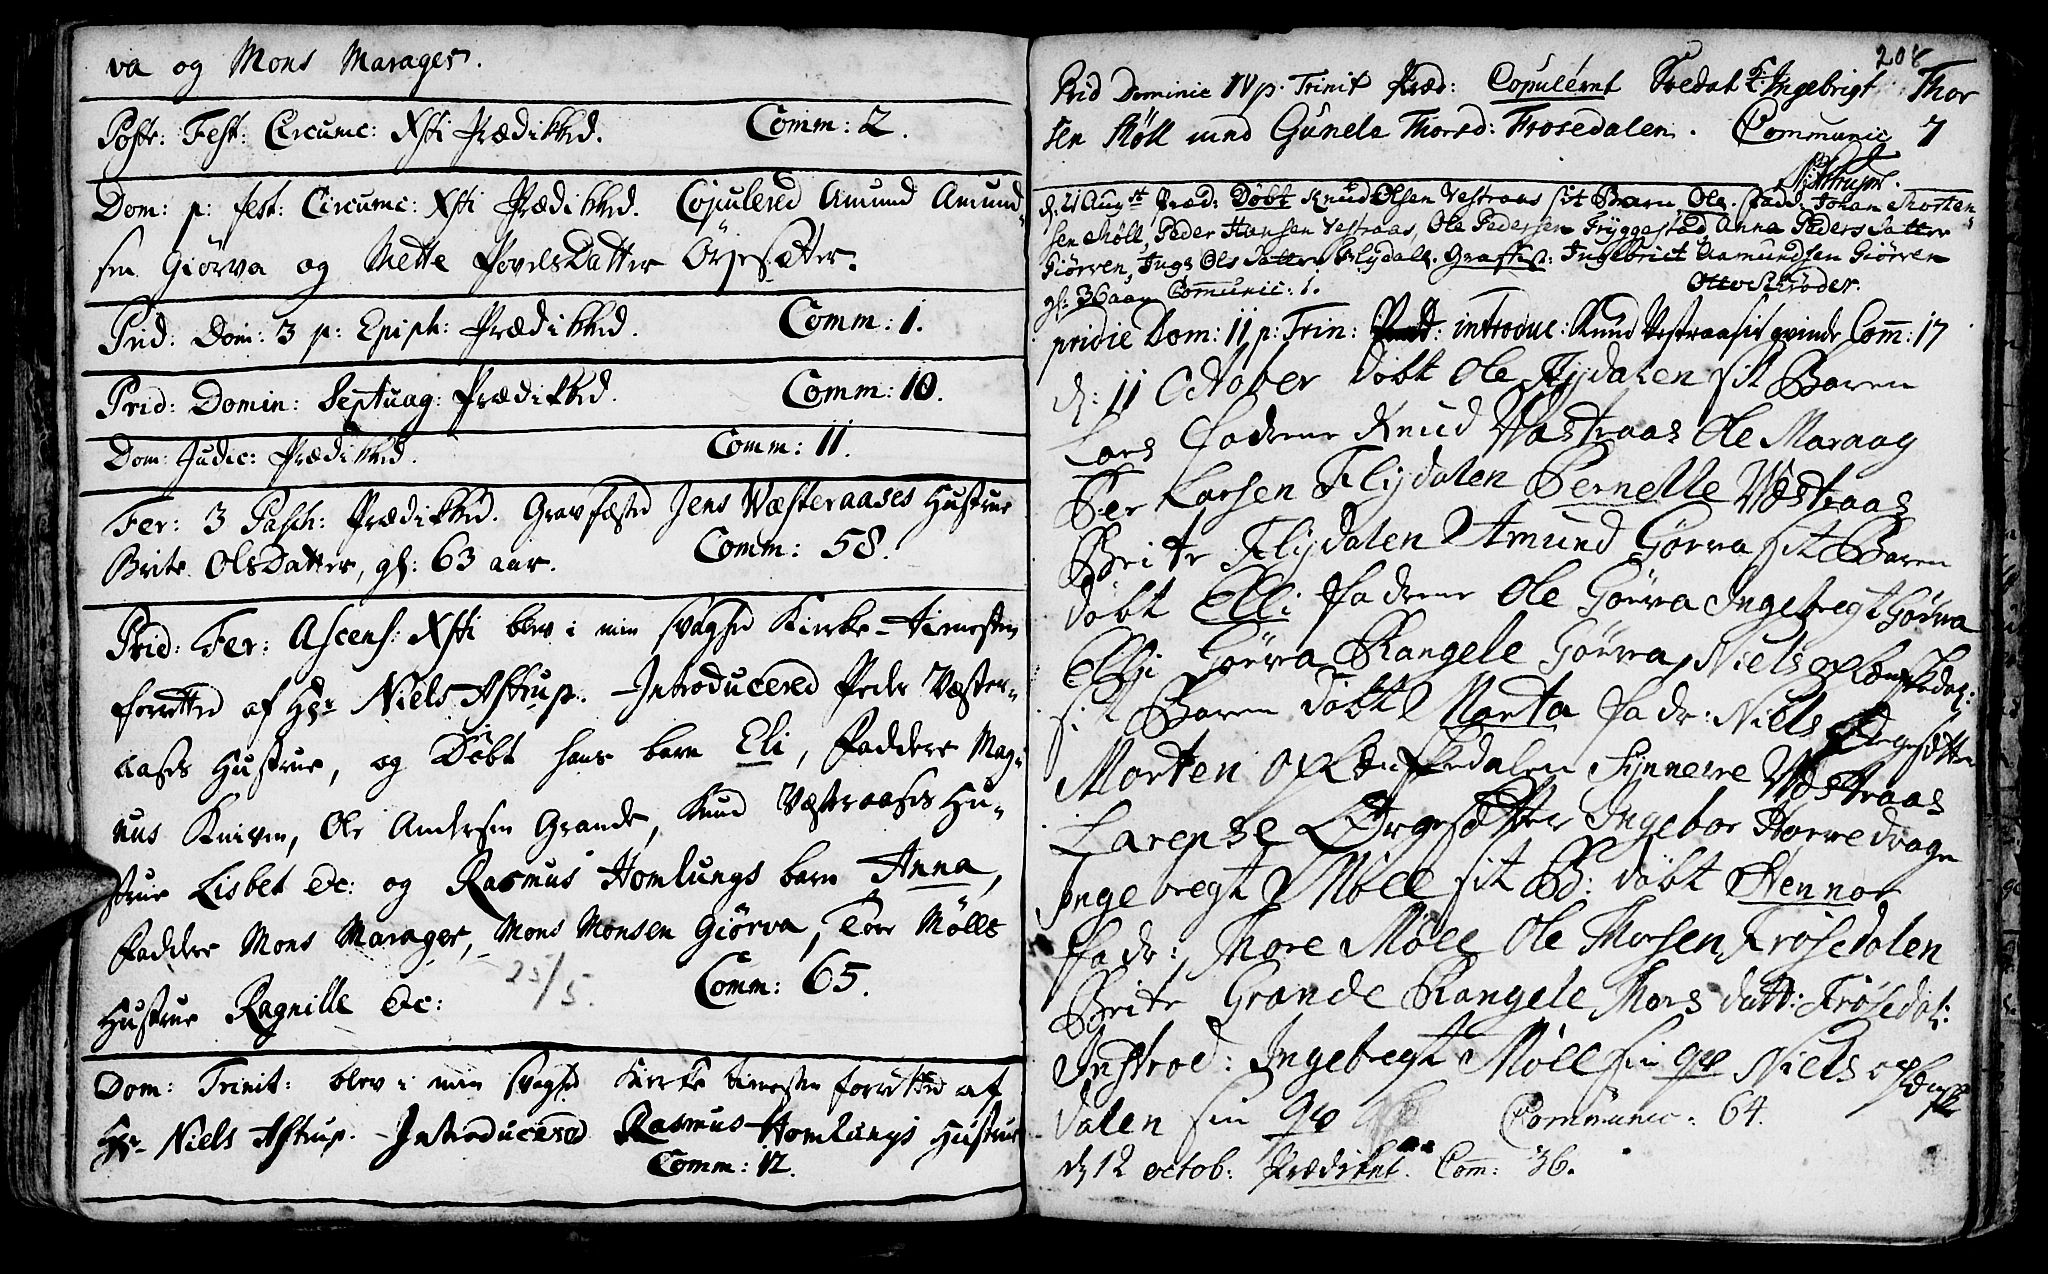 va og Mons Marager.
Postr: Fest: Circumc: Xsti Prædikked. Comm: 2.
Dom: p: fest: Circumc: Xsti Prædikked. Copulered Amund Amund-
sen Giörva og Mette PovelsDatter Örjesæter.
Prid: Dom: 3 p: Epiph: Prædikked. Comm: 1.
Prid: Domin: Septuag: Prædikked. Comm: 10.
Dom: Judic: Prædikked. Comm: 11.
Fer: 3 Pasch: Prædikked. Gravfæsted Jens Wæsteraases Hustrue
Brite OlsDatter, gl: 63 aar. Comm: 58.
Prid: Fer: Ascens: Xsti blev i min svaghed Kirke-tienesten
forretted af Hr. Niels Astrup. Introducered Peder Wæster-
aases Hustrue, og Döbt hans barn Eli, Faddere Mag-
nus Kniven, Ole Andersen Grande, Knud Væsteraases Hu-
strue Lisbet &c: og Rasmus Homlungs barn Anna,
Faddere Mons Marager, Mons Monsen Giörva, Tore Mölls
Hustrue Ragnille &c: 25/5. Comm: 65.
Dom: Trinit: blev i min svaghed Kirke tienesten forretted af
Hr. Niels Astrup. Introducered Rasmus Homlungs Hustrue
Comm: 12.
208
Prid Dominic IV p. Trinit Præd: Copulérnt Ingebrigt Thor
sen Möll med Gunela Thorsd: Frosedalen. Communic 7
NAstrup.
d: 21 Augst Præd: Döbt Knud Olsen Vestraas sit Barn Ole. Fadd: Johan Morten
sen Möll, Peder Hansen Vestraas, Ole Pedersen Tryggestad Anna Peders Datter
Giörven, Inge Ols Datter Flydal. Graffest: Ingebrict Aamundsen Giörven
gl: 36 aar Communic: 1. Otto Ströder.
pridie Dom: 11 p: Trin: Præd: introduc: Knud Vestraas sit qvinde Com: 17
d: 11 October döbt Ole Flydalen sit Baren
Lars Fadrene Knud Væstraas Ole Maraag
Per Larsen Flijdalen Pernelle Wæstraas
Brite Flijdalen Amund Görva sit Baren
döbt Elli Fadrene Ole Görva Ingebregt Görva
Elli Görva Rangele Görva, Niels oplænskedal:
sit Baren döbt Marta fadr: Niels Ørgesætter
Morten oplænskedalen Synnerre Wæstraas
Larense Ørgesætter Ingebor Horredvage
Ingebregt Möll sit B: döbt Hennor
Fadr: Thore Möll Ole Thorsen Frösedalen
Brite Grande Rangele Thors datt: Frösedal:
Introd: Ingebregt Möll sin qv Niels oplænske
dalen sin qv Communic: 64.
d 12 octob: Prædiket. Com: 36.